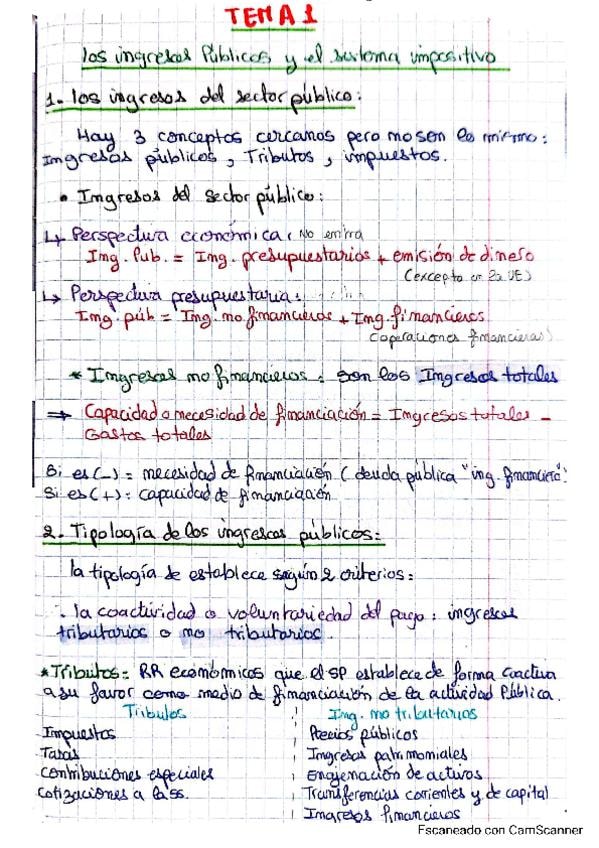 TEMA 1
Los ingresos Públicos y el sistema impositivo
1. Los ingresos del sector público:
Hay 3 conceptos cercanos pero no son lo mismo:
Ingresos públicos, Tributos, impuestos.
• Ingresos del sector público:
↳ Perspectiva económica: No entra
Ing. Pub. = Ing. presupuestarios + emisión de dinero
(excepto en la UE)
↳ Perspectiva presupuestaria:
Ing. púb = Ing. no financieros + Ing. financieros
(operaciones financieras)
* Ingresos no financieros: son los Ingresos totales
⇒ Capacidad o necesidad de financiación = Ingresos totales -
Gastos totales
Si es (-) = necesidad de financiación (deuda pública "ing. financiero".
Si es (+): capacidad de financiación
2. Tipología de los ingresos públicos:
La tipología se establece según 2 criterios:
. La coactividad o voluntariedad del pago: ingresos
tributarios o no tributarios.
* Tributos = RR económicos que el SP establece de forma coactiva
a su favor como medio de financiación de la actividad Pública.
Tributos Ing. no tributarios
Impuestos Precios públicos
Tasas Ingresos patrimoniales
Contribuciones especiales Enajenación de activos
Cotizaciones a la ss. Transferencias corrientes y de capital
Ingresos financieros
Escaneado con CamScanner